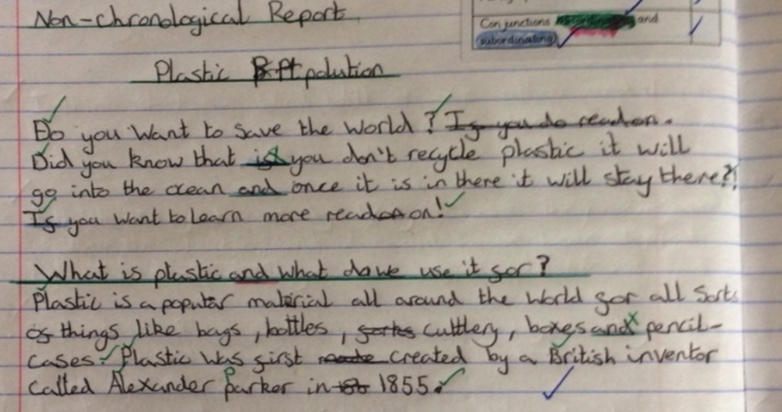 Non-Chronological Report
Conjunctions and
subordinating
Plastic polution
Do you want to save the world? If you do readon.
Did you know that if you don't recycle plastic it will
go into the ocean and once it is in there it will stay there?!
If you want to learn more read on!
What is plastic and what do we use it for?
Plastic is a popular material all around the world for all sorts
of things like bags, bottles, forks cuttlery, boxes and pencil-
cases. Plastic was first made created by a British inventor
called Alexander Parker in 18 1855.